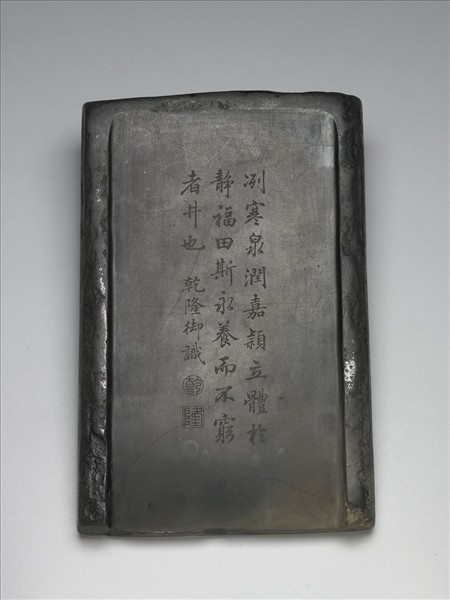 冽寒泉潤嘉穎立體於
静福田斯永養而不窮
者井也 乾隆御識
乾
隆